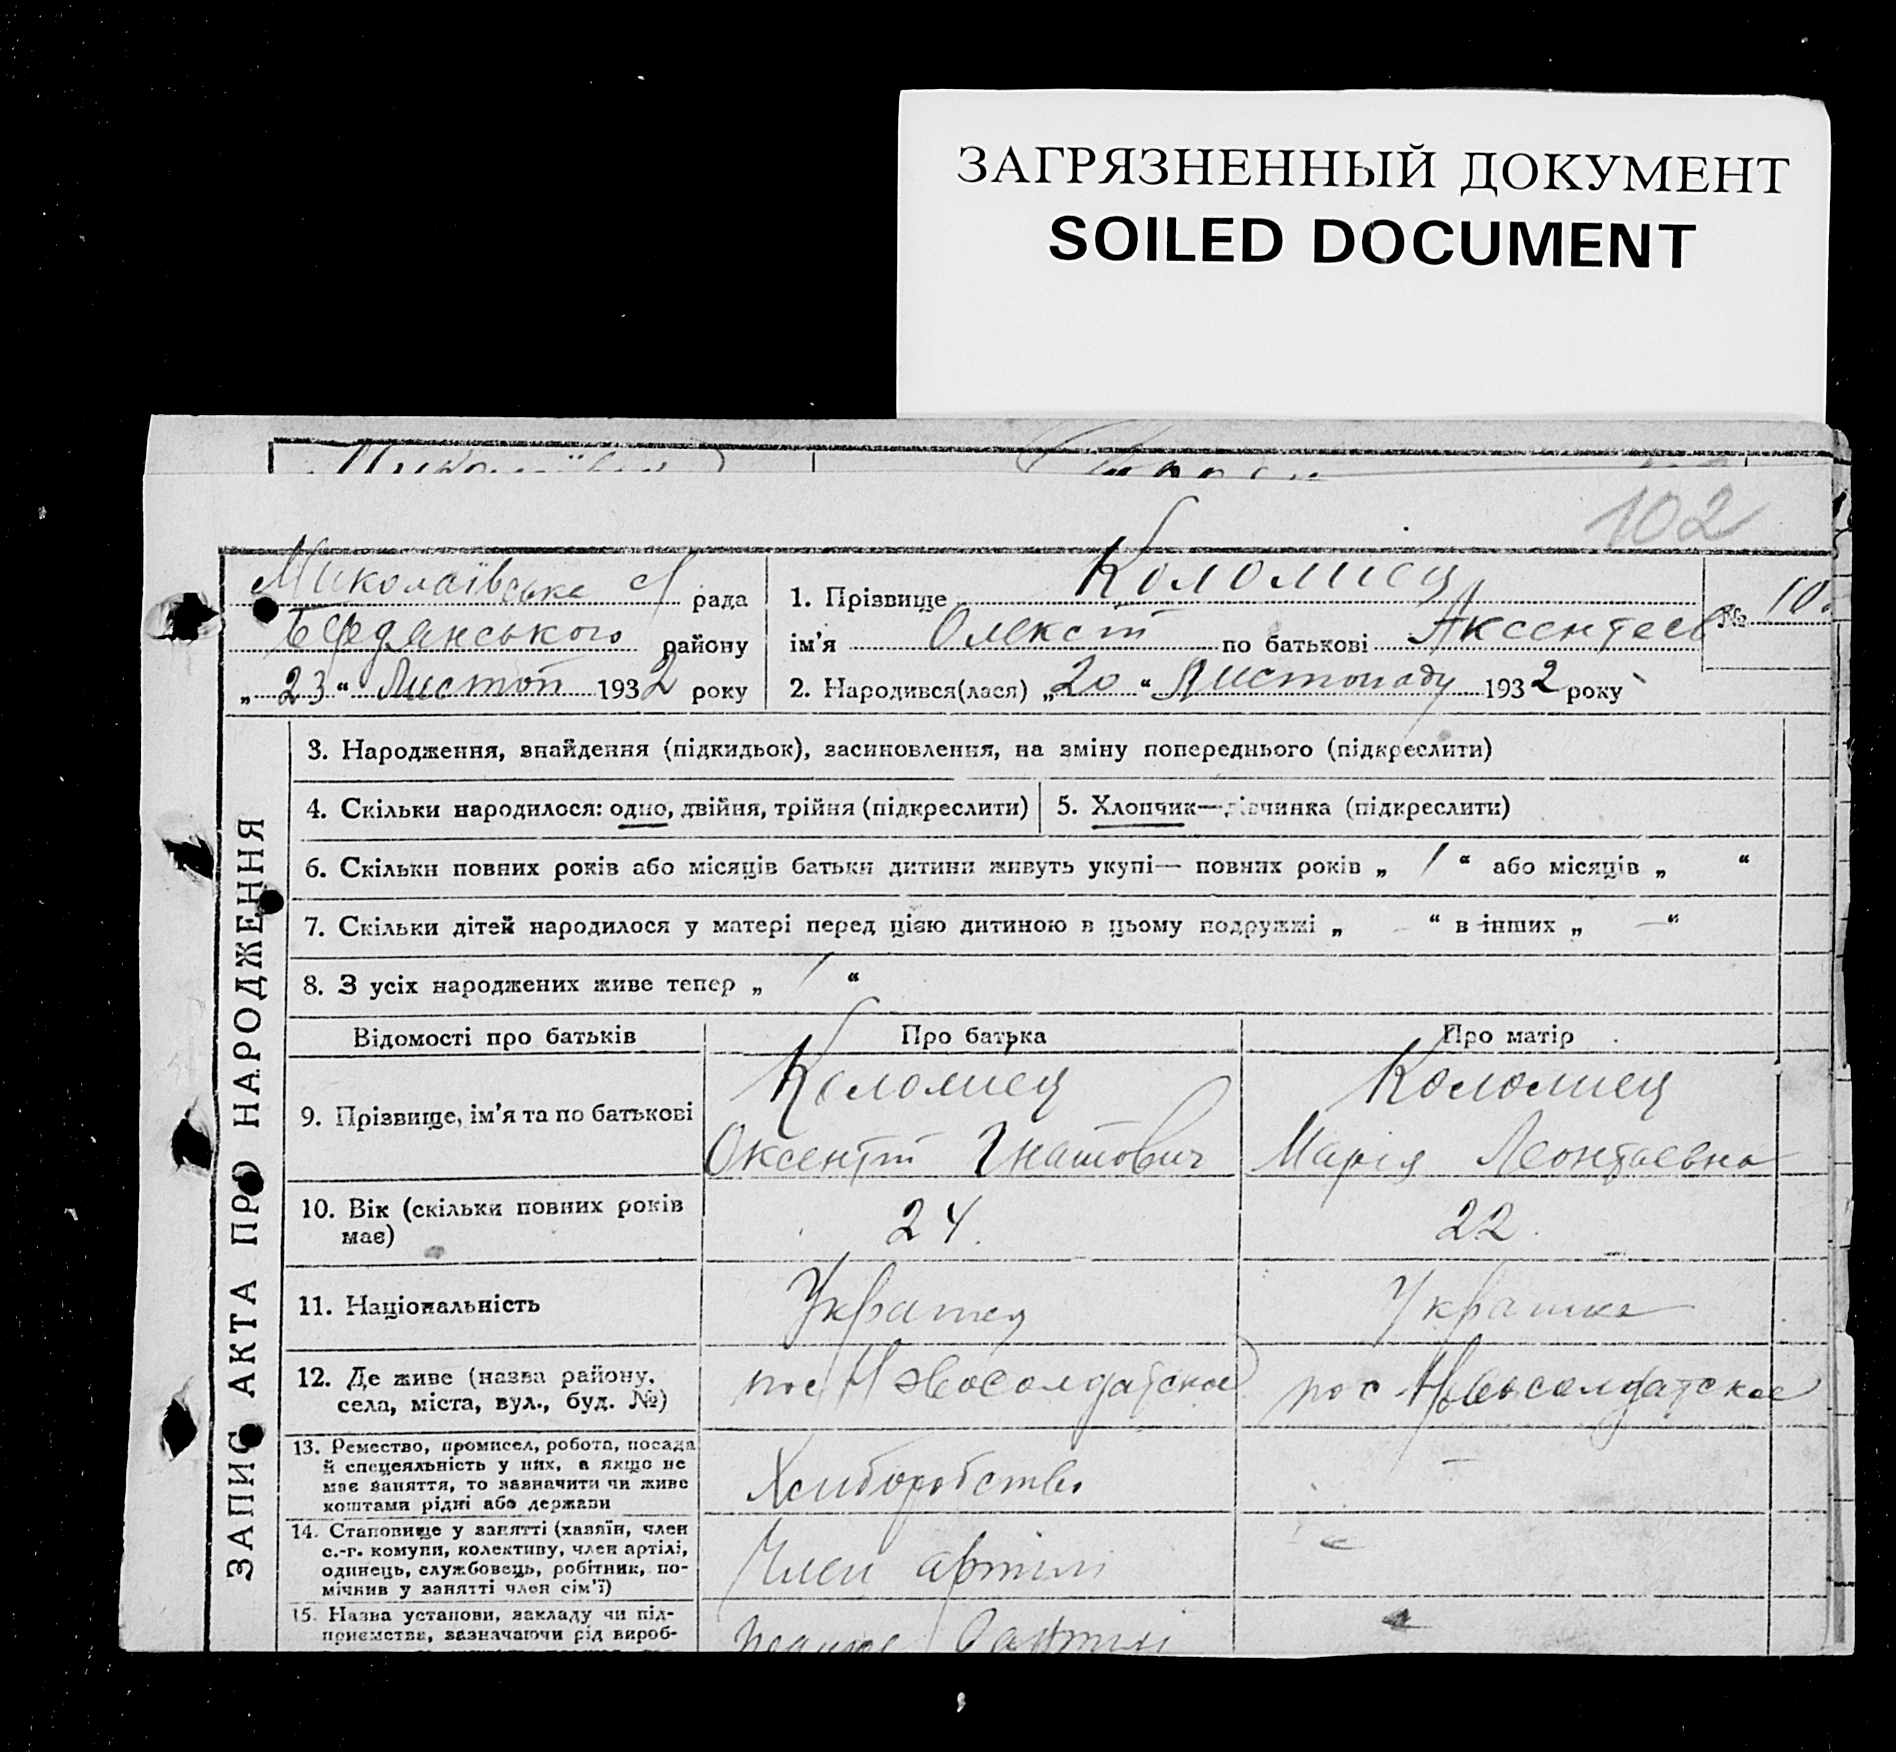 ЗАГРЯЗНЕННЫЙ ДОКУМЕНТ
SOILED DOCUMENT
102
Миколаївська рада
Бердянського району
„ 23 “ Листоп 1932 року
1. Прізвище Коломієц
ім’я Олексій по батькові Аксентєев
№ 10
2. Народився(лася) „ 20 “ Листопаду 1932 року
ЗАПИС АКТА ПРО НАРОДЖЕННЯ
3. Народження, знайдення (підкидьок), засиновлення, на зміну попереднього (підкреслити)
4. Скільки народилося: одно, двійня, трійня (підкреслити)
5. Хлопчик—дівчинка (підкреслити)
6. Скільки повних років або місяців батьки дитини живуть укупі— повних років „ 1 “ або місяців „ “
7. Скільки дітей народилося у матері перед цією дитиною в цьому подружжі „ — “ в інших „ — “
8. З усіх народжених живе тепер „ 1 “
Відомості про батьків Про батька Про матір
9. Прізвище, ім’я та по батькові
Коломиец
Оксентій Гнатович
Коломиец
Марія Леонтьевна
10. Вік (скільки повних років має)
24.
22.
11. Національність
Українец
Українка
12. Де живе (назва району, села, міста, вул., буд. №)
пос Новосолдатское
пос Новосолдатское
13. Ремество, промисел, робота, посада
й спецеяльність у них, а якщо не
має заняття, то зазначити чи живе
коштами рідні або держави
Хлиборобство
—
14. Становище у занятті (хазяїн, член
с.-г. комуни, колективу, член артілі,
одинець, службовець, робітник, по-
мічник у занятті член сім’ї)
Член артилі
15. Назва установи, закладу чи під-
приємства, зазначаючи рід вироб-